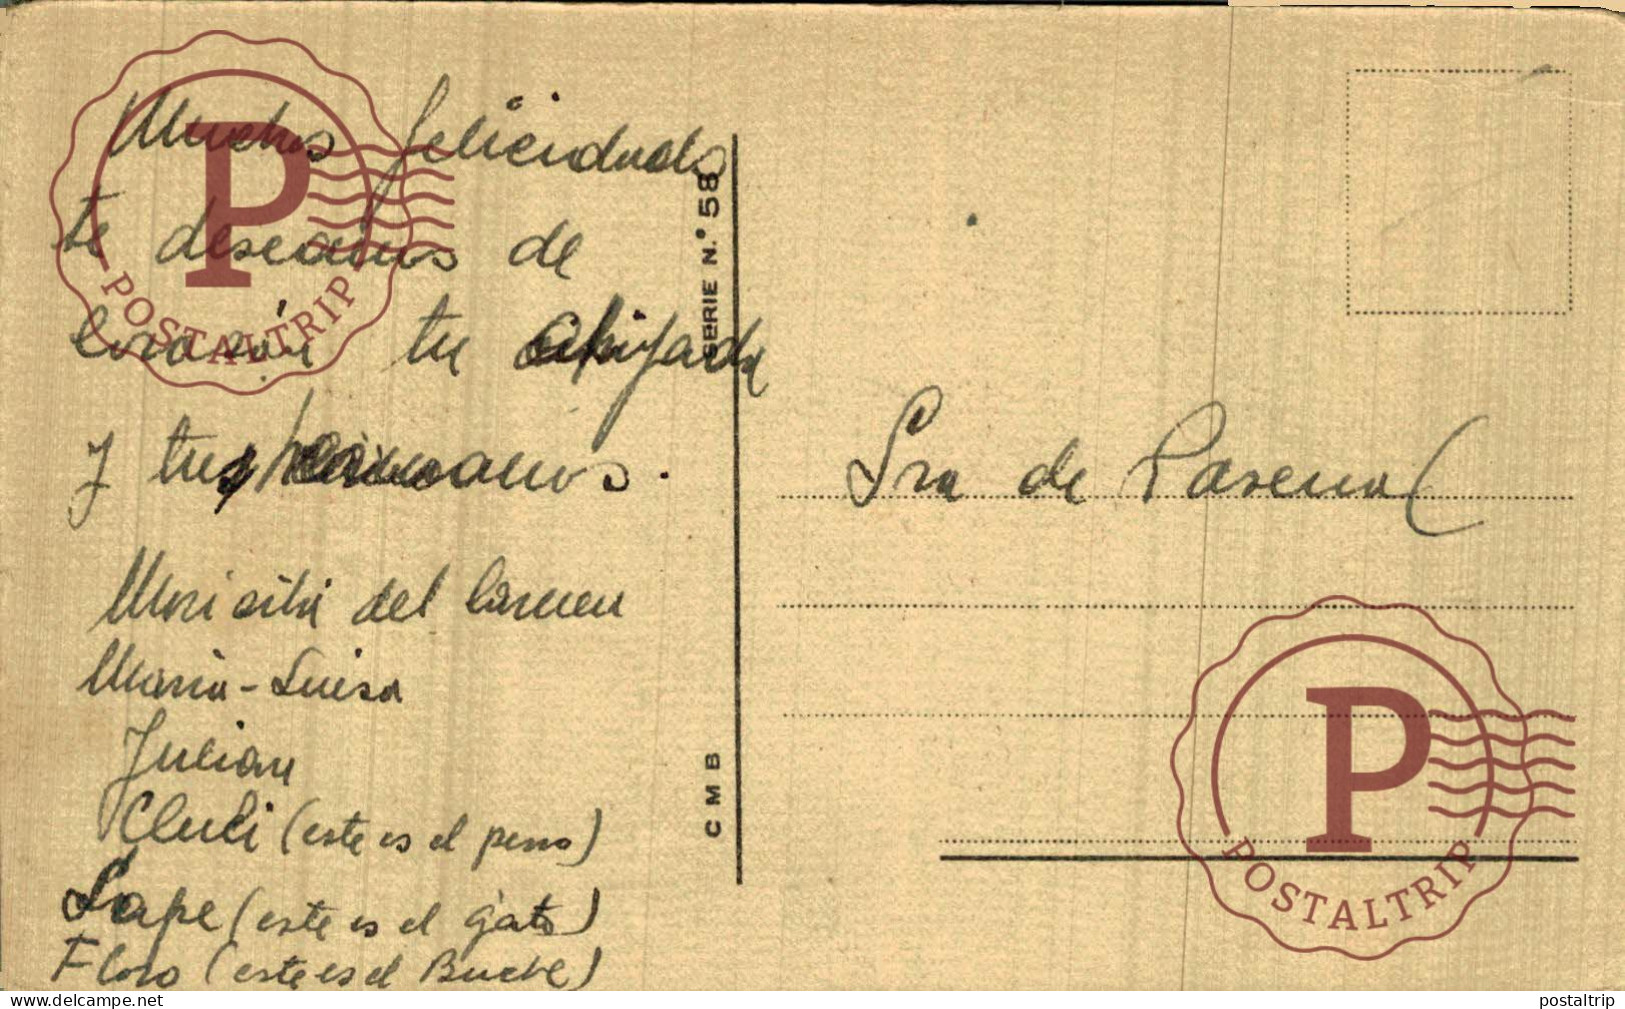 Muchas felicidades
te deseamos de
corazón tu ahijada
y tus hermanos.
Mari del Carmen
María-Luisa
Julian
Chuli (este es el perro)
Lape (este es el gato)
Floro (este es el Buche)
SERIE N.° 58
C M B
Sra de
POSTALTRIP
POSTALTRIP
www.delcampe.net
postaltrip